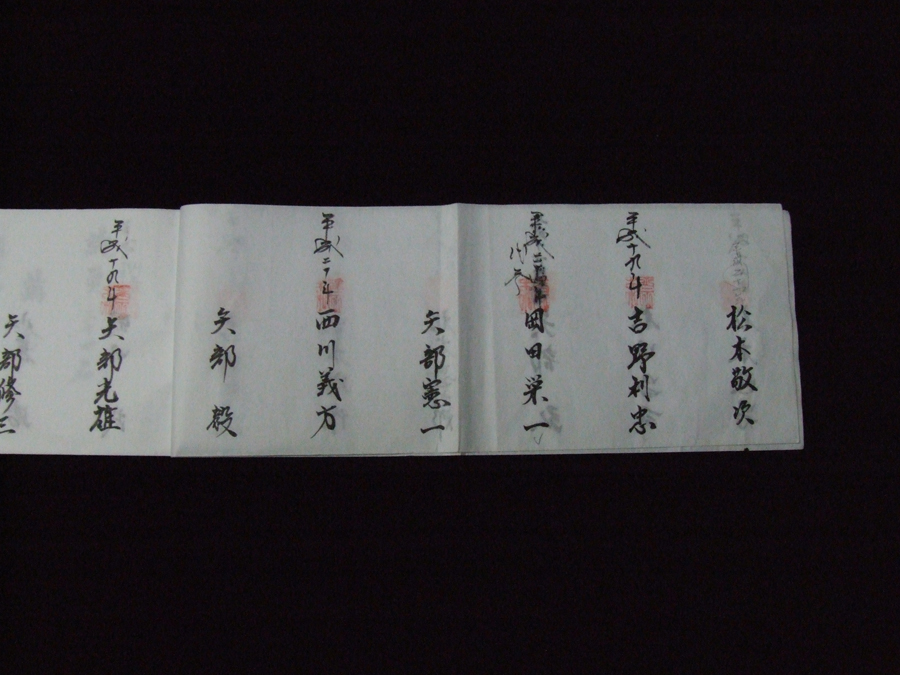 松本敬次
平成十九年
吉野利忠
岡田栄一
矢部憲一
平成二十年
西川義方
矢部 毅
平成十九年
矢部光雄
矢部修三